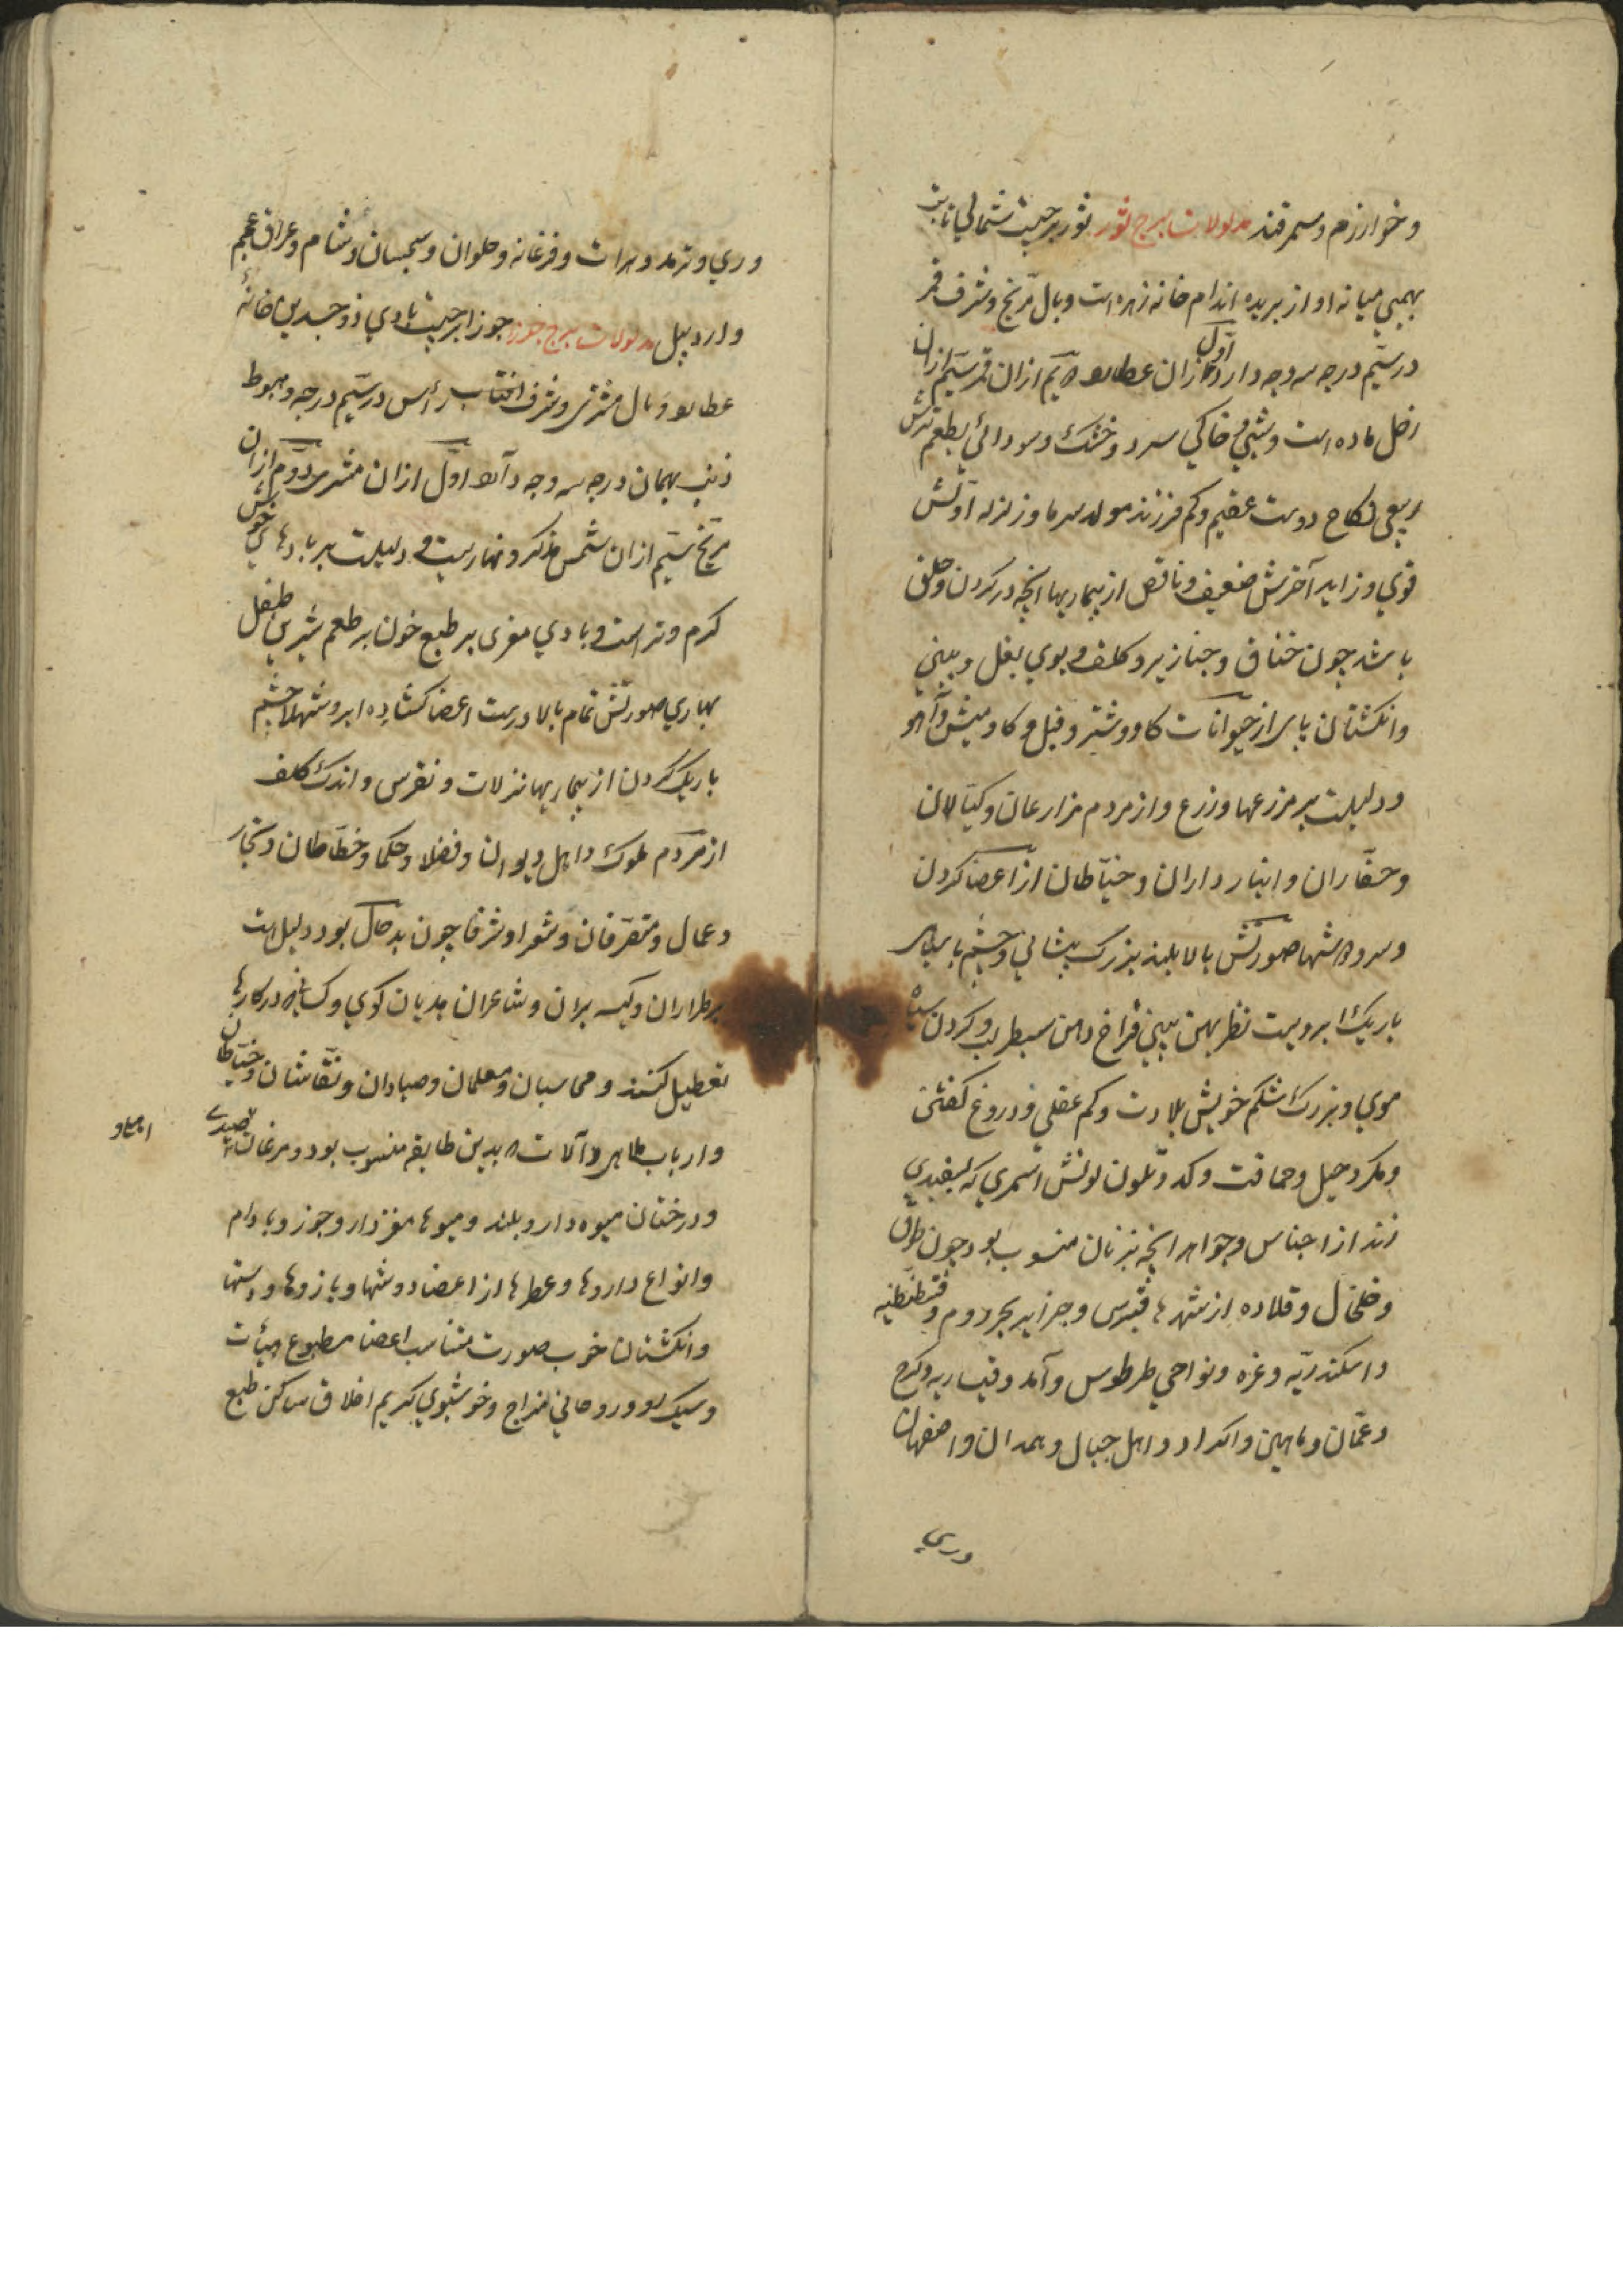 و خوارزم و سمرقند مدلولات برج ثور ثور برجیست شمالی ثابت
بهیمی میانه اواز بریده اندام خانه زهره است وبال مریخ و شرف قمر
در سیم درجه سه وجه دارد اول ازان عطارد دویم ازان قمر سیم ازان
زحل ماده است و شبی و خاکی سرد و خشک و سودائی بطعم ترش
ربیعی نکاح دوست عقیم و کم فرزند مولد سرما و زلزله اولش
قوی و زاید آخرش ضعیف و ناقص از بیماریها انچه در کردن و حلق
باشد چون خناق و خنازیر و کلف و بوی بغل و بینی
وانکشتان پای از حیوانات کاو و شتر و فیل و کاومیش و آهو
و دلیلست بر مزرعها و زرع و از مردم مزارعان و کیالان
و حفاران و انبارداران و خیاطان از اعضا کردن
و سر دوشها صورتش بالا بلند بزرک پیشانی و چشم با سیاهی
باریک ابرو پست نظر پهن بینی فراخ دهن سطبر لب و کردن سیاه
موی و بزرک شکم خویش بلادت و کم عقلی و دروغ کفتن
و مکر و حیل و حماقت و کد و تلون لونش اسمری که بسفیدی
زند از اجناس و جواهر انچه بزنان منسوب بود چون طوق
و خلخال و قلاده از شهرها قبرس و جزایر بحر روم و قسطنطنیه
و اسکندریه و غزه و نواحی طرطوس و آمد و قیساریه و کرج
و عمان و ماهین و اکراد و اهل جبال و همدان و اصفهان
وری
وری و ترمد و هرات و فرغانه و حلوان و سجستان و شام و عراق عجم
و اردبیل مدلولات برج جوزا جوزا برجیست بادی ذو جسدین خانهٔ
عطارد وبال مشتری و شرف رأس در سیم درجه و هبوط
ذنب بهمان درجه سه وجه دارد اول ازان مشتری دوم ازان
مریخ سیم ازان شمس مذکر و نهاریست و دلیلست بر بادهای خوش
کرم و تر است و بادی مغربی بر طبع خون بر طعم شیرین طفل
بهاری صورتش تمام بالا درست اعضا کشاده ابرو شهلا چشم
باریک کردن از بیماریها نزلات و نقرس و اندک کلف
از مردم ملوک و اهل دیوان و فضلا و حکما و خطاطان و تجار
و عمال و متصرفان و شعرا و شرفا چون بدحال بود دلیل است
بر طراران و کیسه بران و شاعران هذیان کوی و کسانیکه در کارها
تعطیل کنند و محاسبان و معلمان و صیادان و نقاشان و خیاطان
و ارباب ملاهی و آلات که بدین طایفه منسوب بود و مرغان صیدی
و درختان میوه دار و بلند و میوها مغزدار و جوز و بادام
و انواع داروها و عطرها از اعضا دوشها و بازوها و دستها
و انکشتان خوب صورت متناسب اعضا مطبوع هیأت
و سبک رو و روحانی مزاج و خوشبوی کریم اخلاق ساکن طبع